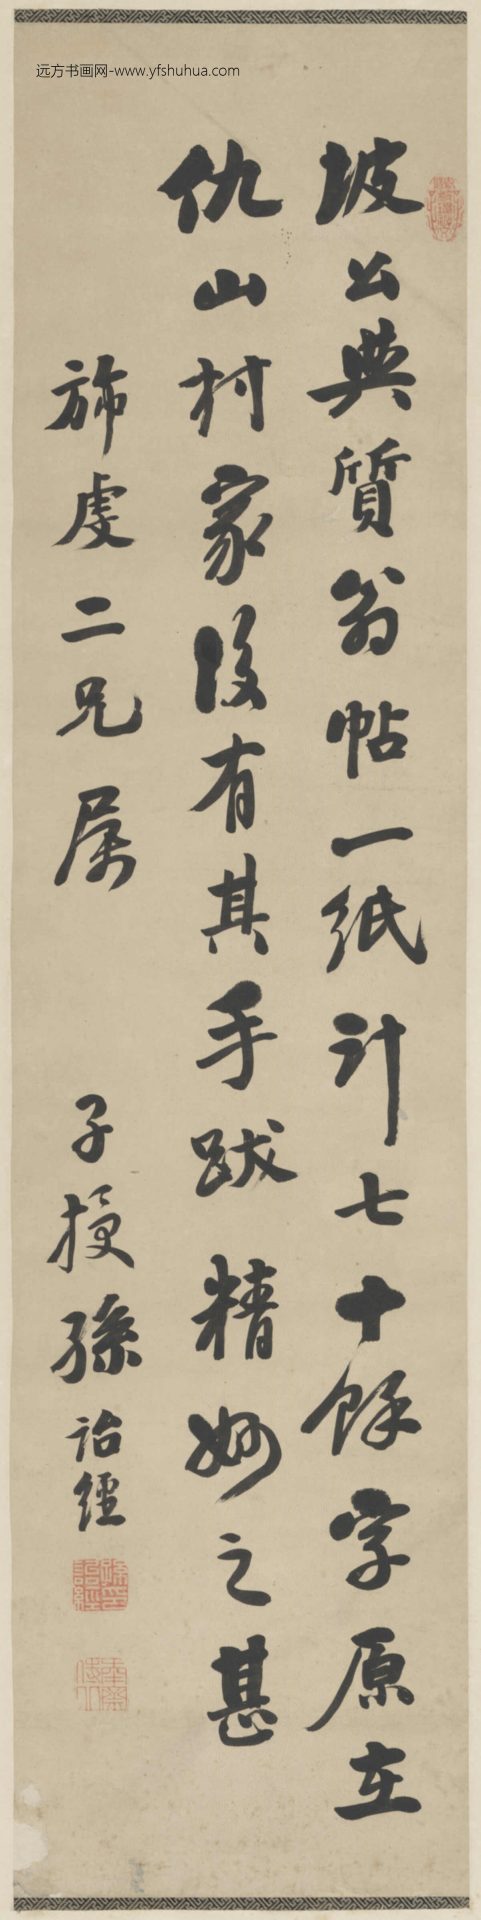 远方书画网-www.yfshuhua.com
坡公與質翁帖一紙計七十餘字原在
仇山村家後有其手跋精妙之甚
旆虔二兄屬
子授孫詒經
孫印詒經